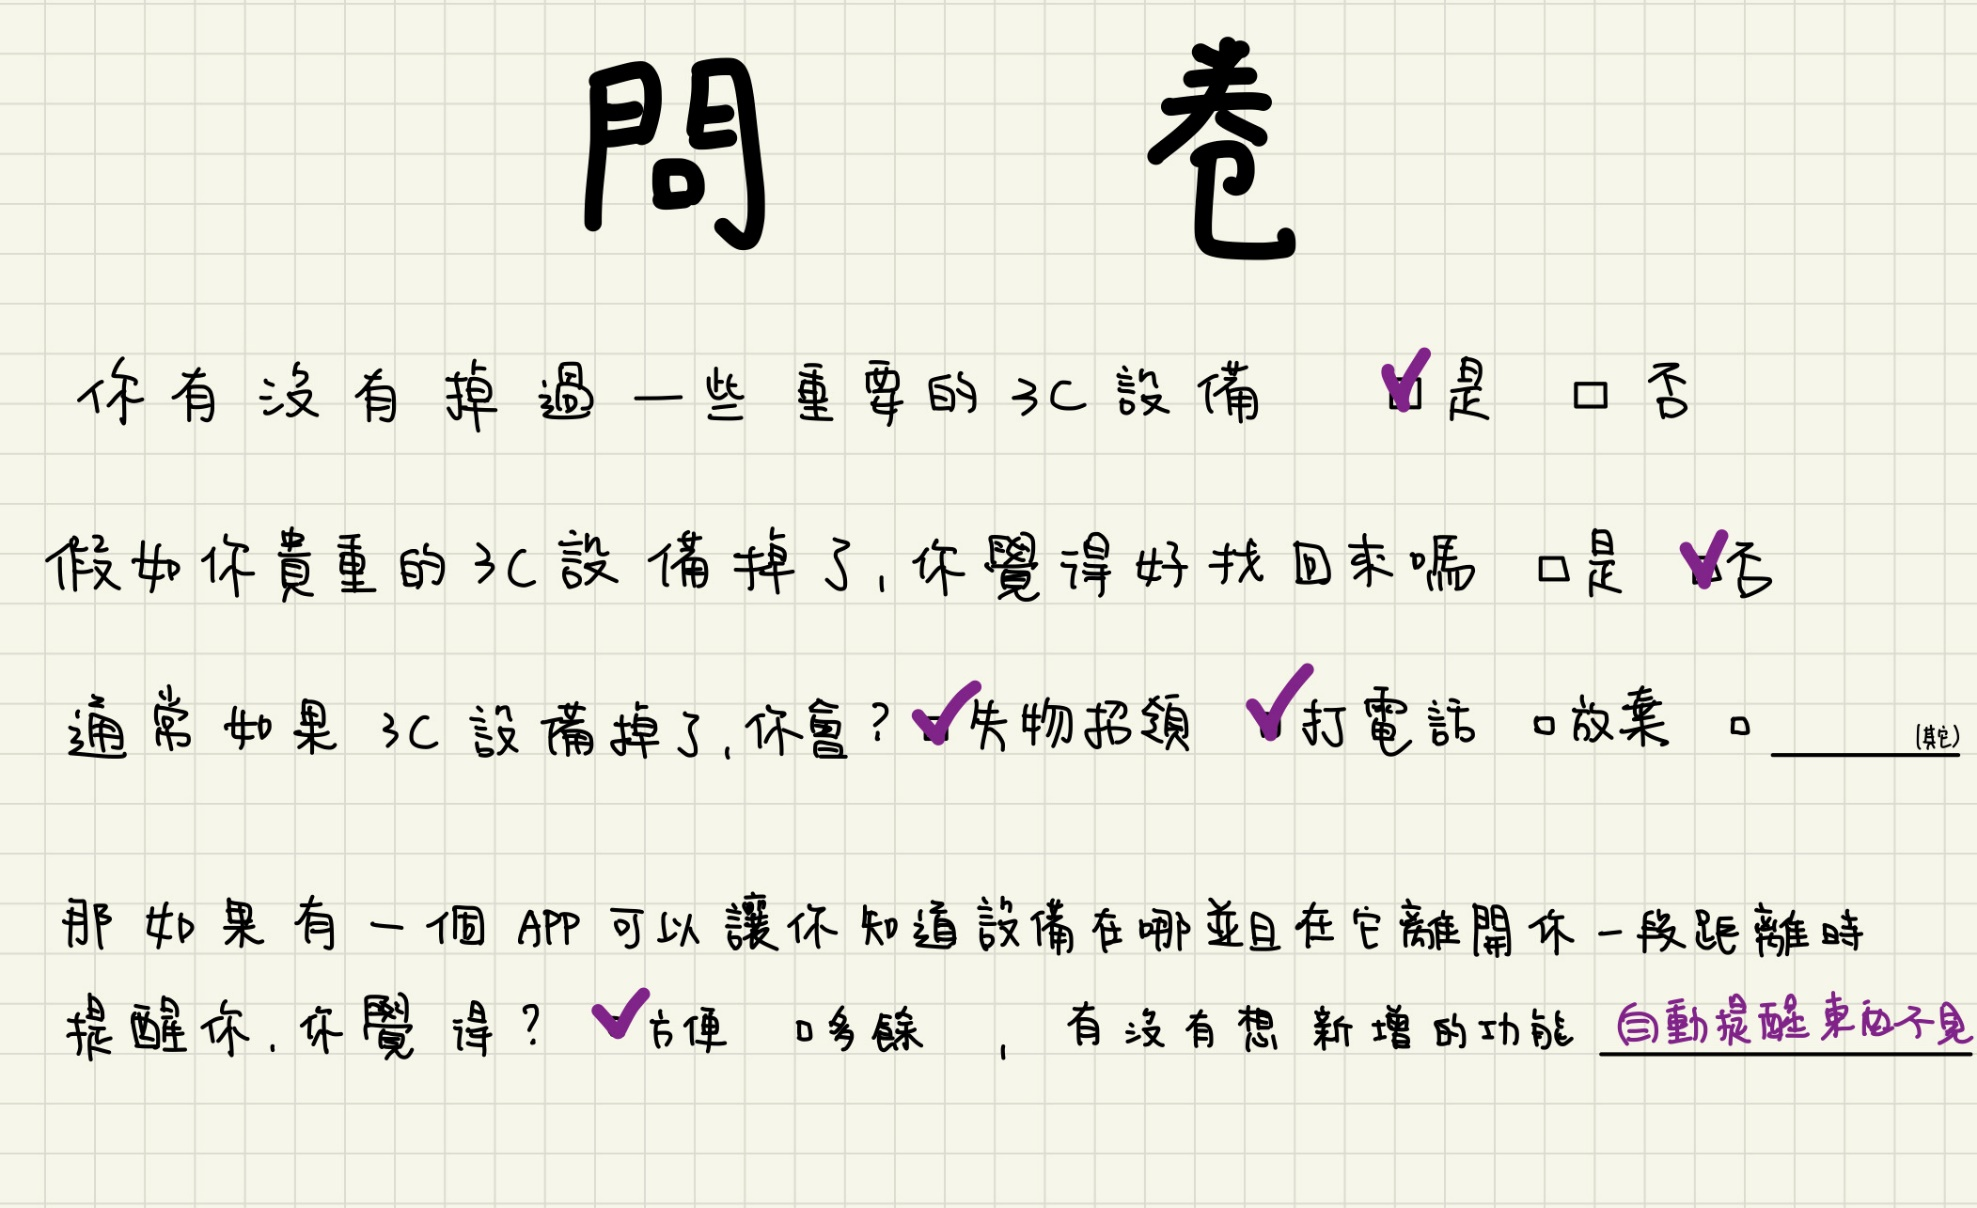 問 卷
你有沒有掉過一些重要的3C設備 ☑是 □否
假如你貴重的3C設備掉了,你覺得好找回來嗎 □是 ☑否
通常如果3C設備掉了,你會?☑失物招領 ☑打電話 □放棄 □____(其它)
那如果有一個APP可以讓你知道設備在哪並且在它離開你一段距離時
提醒你,你覺得?☑方便 □多餘 , 有沒有想新增的功能 自動提醒東西不見